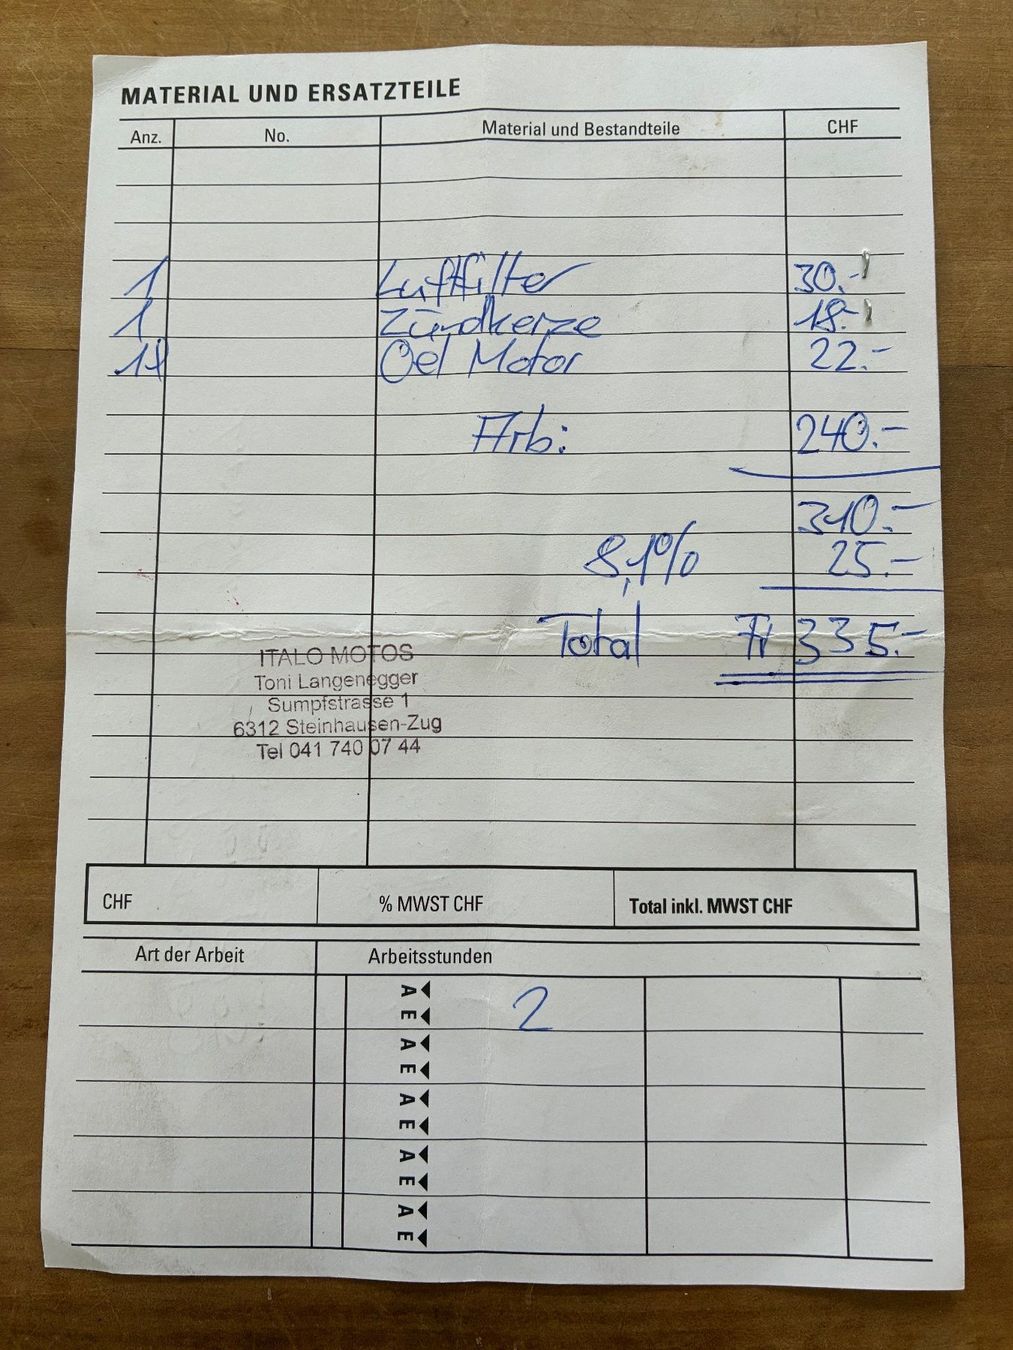 MATERIAL UND ERSATZTEILE
Anz. No. Material und Bestandteile CHF
1 Luftfilter 30.-
1 Zündkerze 18.-
1l Oel Motor 22.-
Arb: 240.-
310.-
8,1% 25.-
Total Fr 335.-
ITALO MOTOS
Toni Langenegger
Sumpfstrasse 1
6312 Steinhausen-Zug
Tel 041 740 07 44
CHF % MWST CHF Total inkl. MWST CHF
Art der Arbeit Arbeitsstunden
A
E 2
A
E
A
E
A
E
A
E